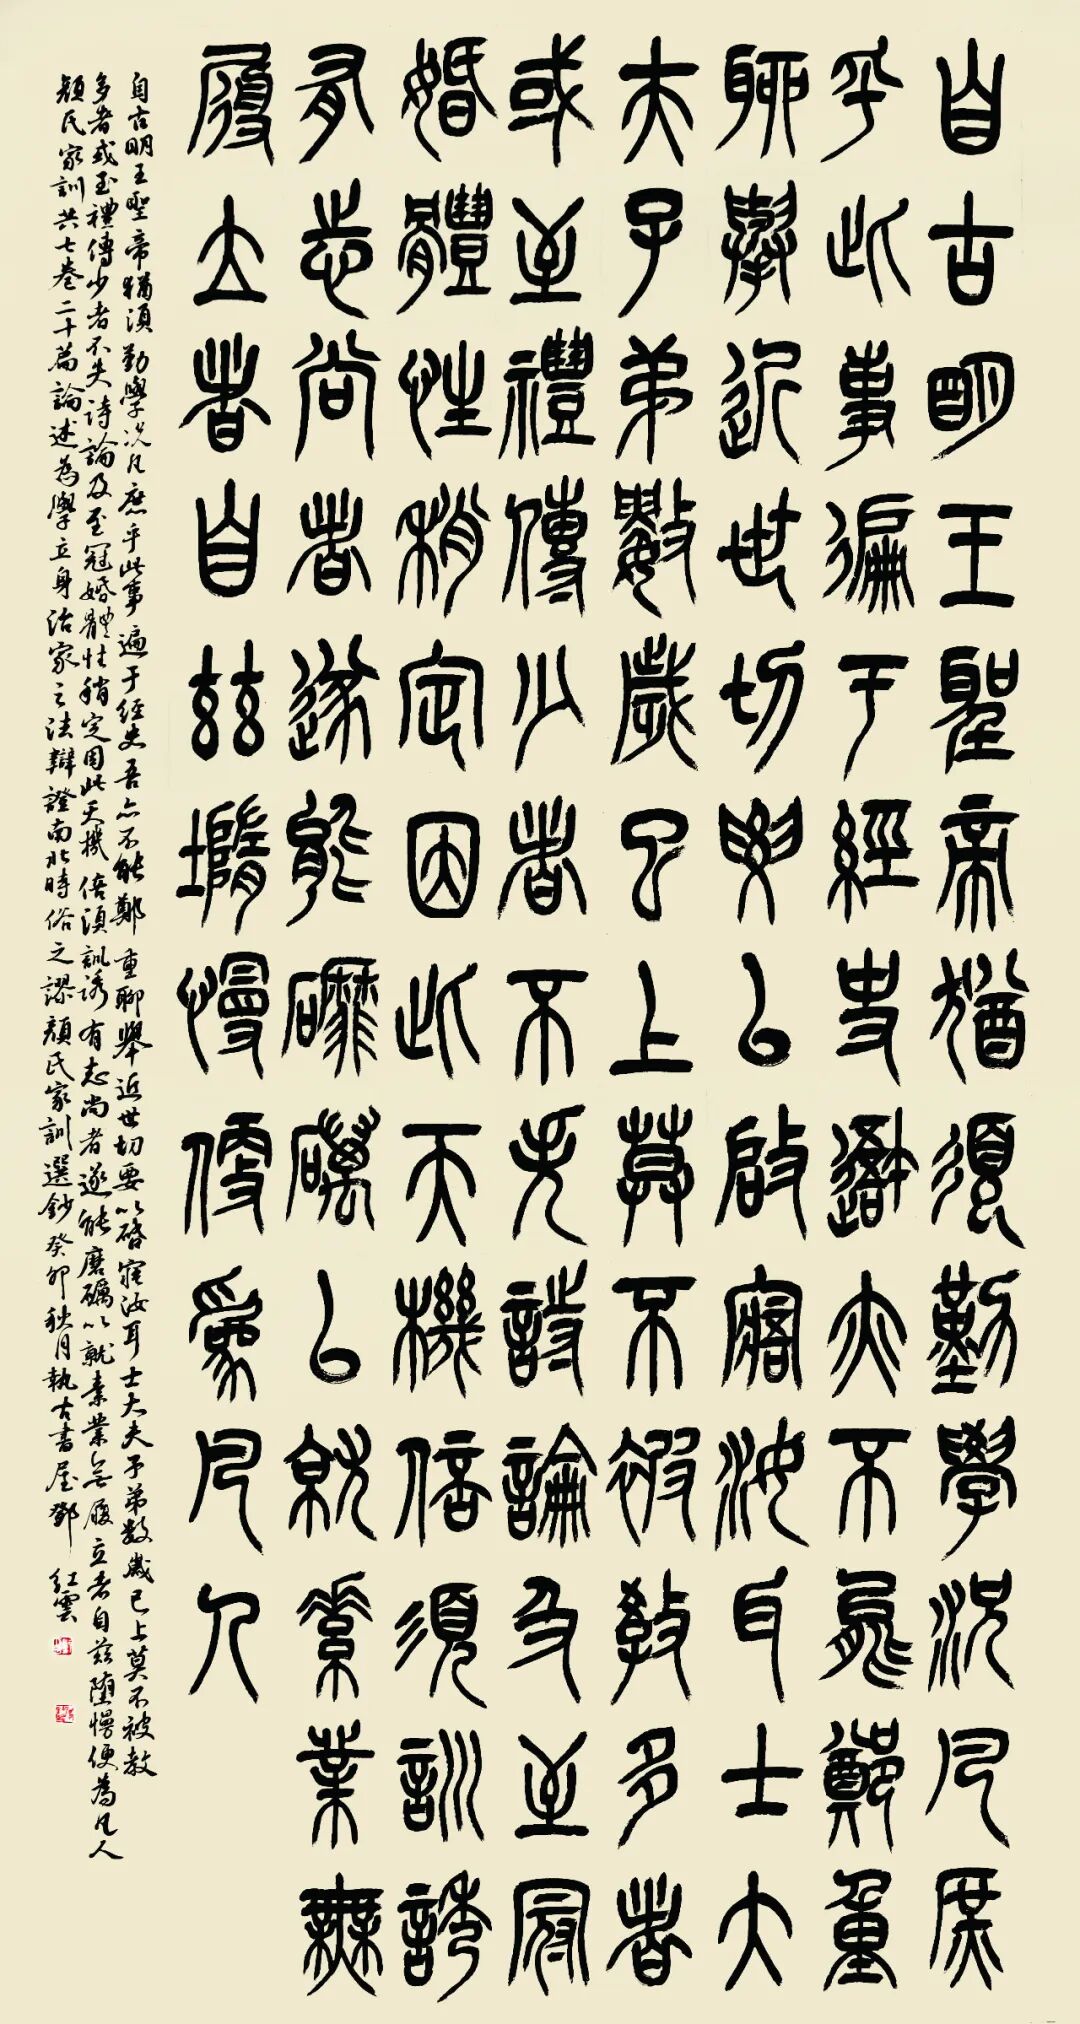 自古明王聖帝猶須勤學況凡庶
乎此事徧于經史吾亦不能鄭重
聊舉近世切要以啟寤汝耳士大
夫子弟數歲已上莫不被教多者
或至禮傳少者不失詩論及至冠
婚體性稍定因此天機倍須訓誘
有志尚者遂能磨礪以就素業無
履立者自茲墮慢便為凡人
自古明王聖帝猶須勤學況凡庶乎此事遍于經史吾亦不能鄭重聊舉近世切要以啓寤汝耳士大夫子弟數歲已上莫不被教
多者或至禮傳少者不失詩論及至冠婚體性稍定因此天機倍須訓誘有志尚者遂能磨礪以就素業無履立者自茲墮慢便為凡人
顏氏家訓共七卷二十篇論述為學立身治家之法辯證南北時俗之謬顏氏家訓選鈔癸卯秋月執古書屋鄧紅雲